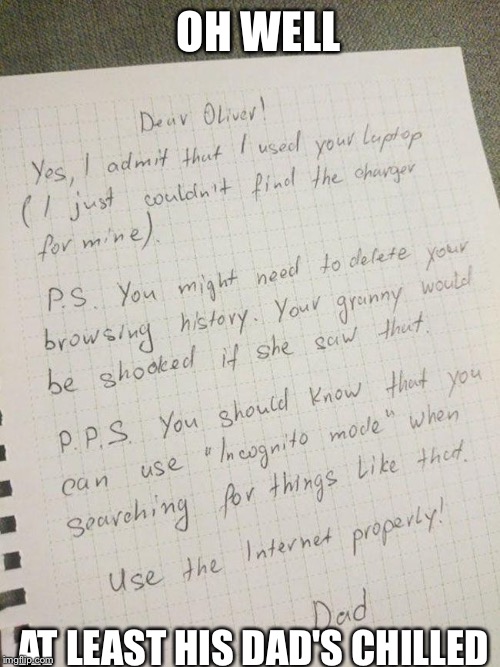 OH WELL
Dear Oliver!
Yes, I admit that I used your laptop
(I just couldn't find the charger
for mine).
P.S. You might need to delete your
browsing history. Your granny would
be shooked if she saw that.
P.P.S. You should know that you
can use "Incognito mode" when
searching for things like that.
Use the Internet properly!
Dad
AT LEAST HIS DAD'S CHILLED
imgflip.com